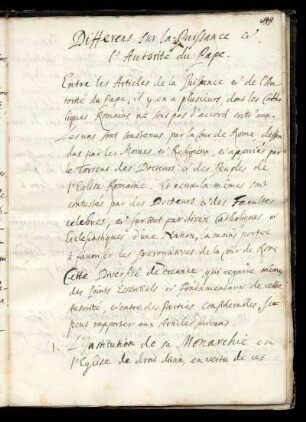 Differens sur la Puissance et
l'Autorité du Pape.
Entre les Articles de la Puissance et de l'Au-
torité du Pape, il y en a plusieurs, dont les Catho-
liques Romains ne sont pas d'accord entr'eux.
Les uns sont soutenus par la Cour de Rome defen-
dus par les Moines, et Religieux, et appuiés par
le Torrens des Docteurs et des Peuples de
l'Eglise Romaine. Et ceux là mêmes sont
contestés par des Docteurs et des Facultes
celebres, et sur tout par divers Catholiques et
Ecclesiastiques d'une Nation, a moins portée
à favoriser les de la Cour de Rome
Cette Diversité de creance, qui regarde même
des Points Essentiels et Fondamentaux de cette
Autorité, et entre des Parties considerables, se
peut rapporter aux Articles suivans
1. L'Institution de sa Monarchie en
l'Eglise de droit divin, en vertu de ces